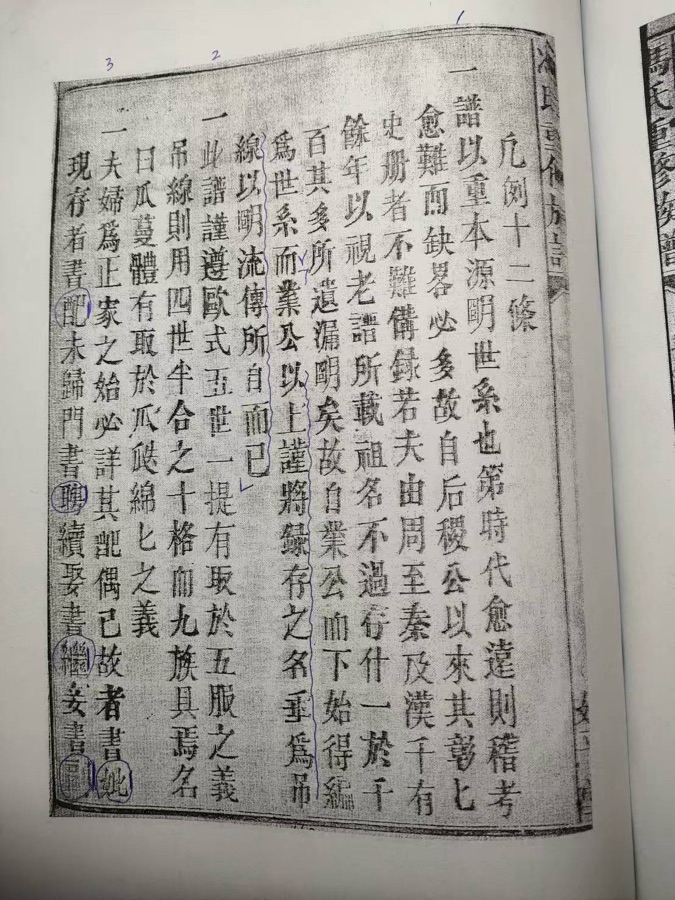 馮氏重修族譜
1
2
3
馮氏重修族譜
凡例十二條
一譜以重本源明世系也第時代愈遠則稽考
愈難而缺畧必多故自后稷公以來其彰匕
史册者不難備録若夫由周至秦及漢千有
餘年以視老譜所載祖名不過存什一於千
百其多所遺漏明矣故自業公而下始得編
爲世系而業公以上謹將録存之名垂爲吊
線以明流傳所自而已
一此譜謹遵歐式五世一提有取於五服之義
吊線則用四世半合之十格而九族具焉名
曰瓜蔓體有取於瓜瓞綿匕之義
一夫婦爲正家之始必詳其配偶已故者書妣
現存者書配未歸門書聘續娶書繼妾書副